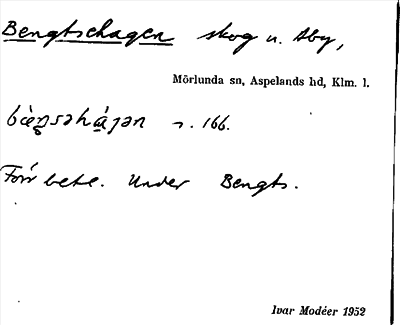 Bengtschagen skog u. Åby,
Mörlunda sn, Aspelands hd, Klm. l.
166.
Förr bete. Under Bengts.
Ivar Modéer 1952